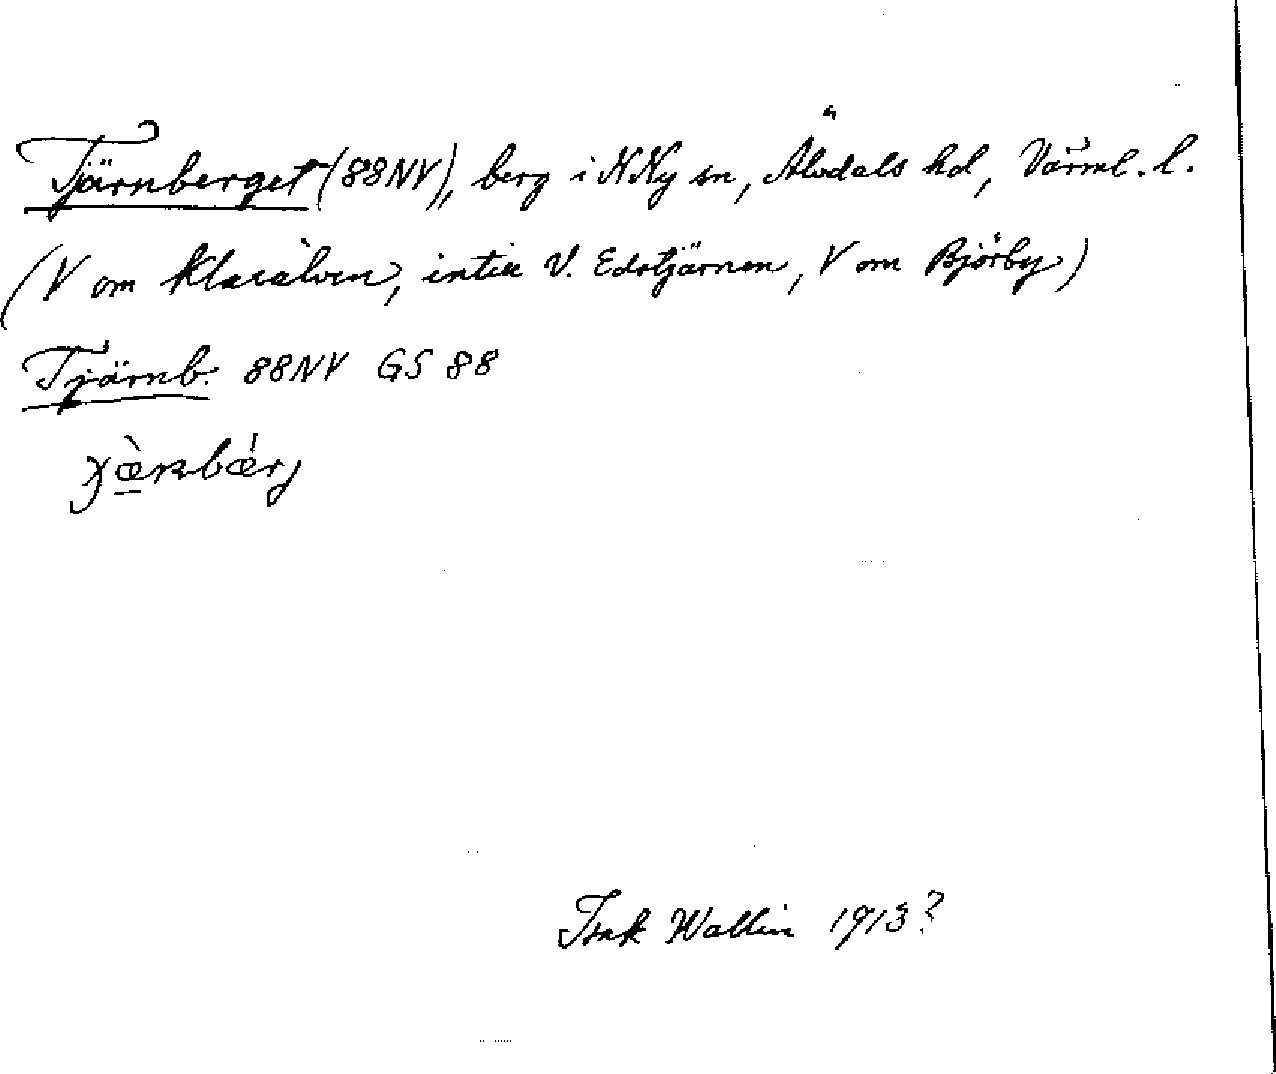 Tjärnberget (88NV), berg i NNy sn, Älvdals hd, Värml. l.
(V om Klarälven, intill V. Edstjärnen, V om Björby)
Tjärnb. 88NV GS 88
Isak Wallin 1913?